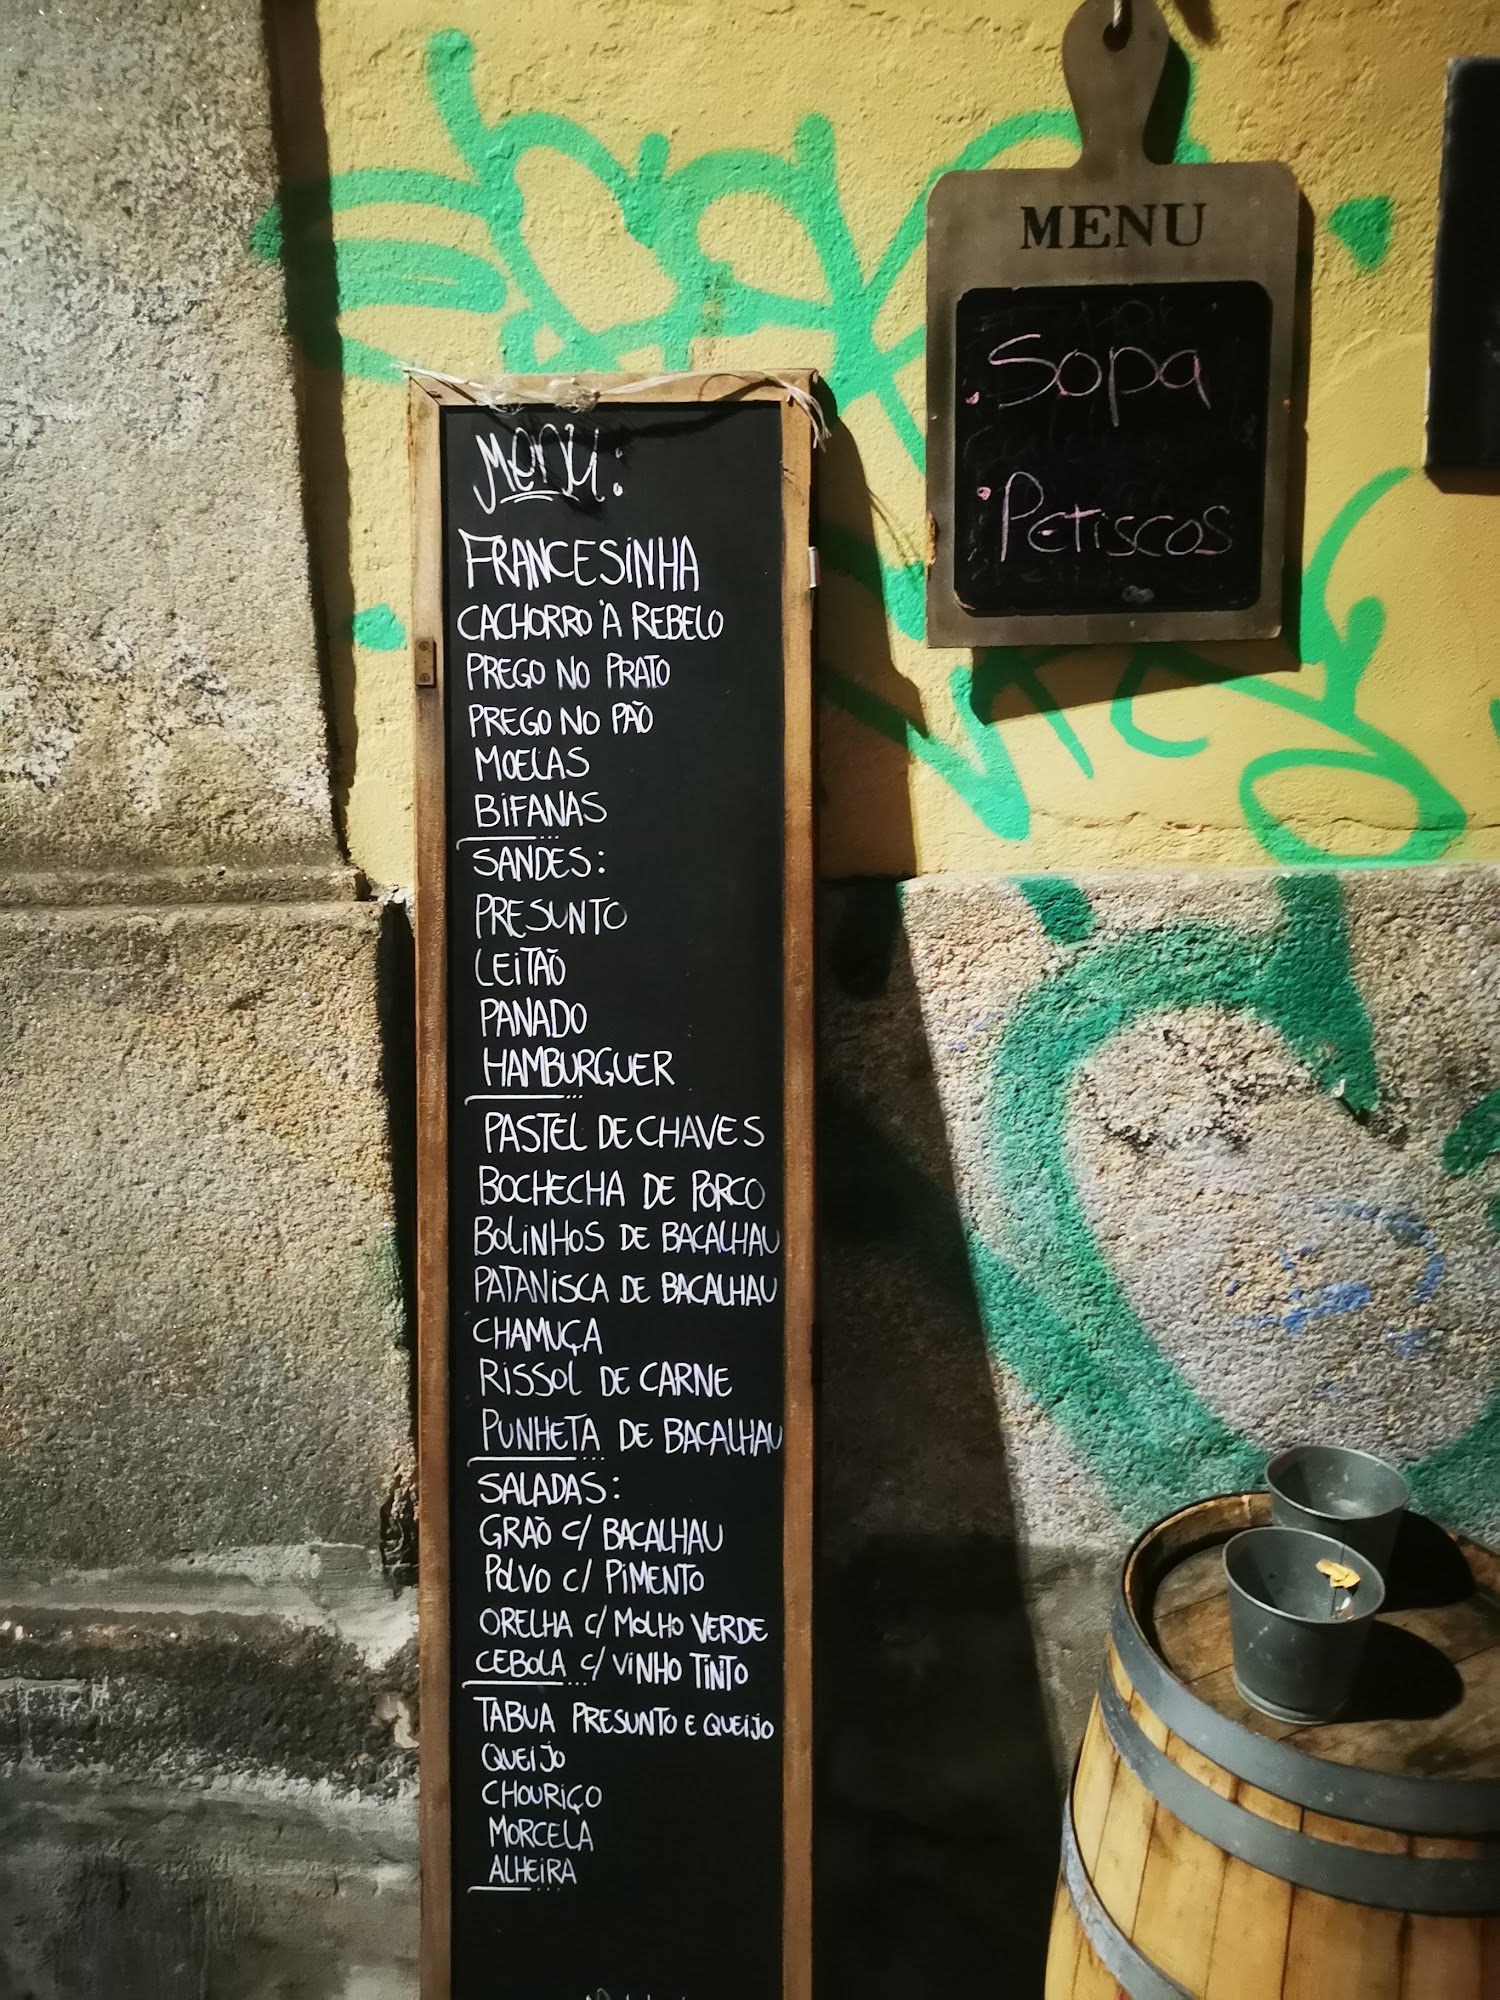 Menu:
FRANCESINHA
CACHORRO À REBELO
PREGO NO PRATO
PREGO NO PÃO
MOELAS
BIFANAS
SANDES:
PRESUNTO
LEITÃO
PANADO
HAMBURGUER
PASTEL DE CHAVES
BOCHECHA DE PORCO
BOLINHOS DE BACALHAU
PATANISCA DE BACALHAU
CHAMUÇA
RISSOL DE CARNE
PUNHETA DE BACALHAU
SALADAS:
GRÃO C/ BACALHAU
POLVO C/ PIMENTO
ORELHA C/ MOLHO VERDE
CEBOLA C/ VINHO TINTO
TABUA PRESUNTO E QUEIJO
QUEIJO
CHOURIÇO
MORCELA
ALHEIRA
MENU
. Sopa
. Petiscos